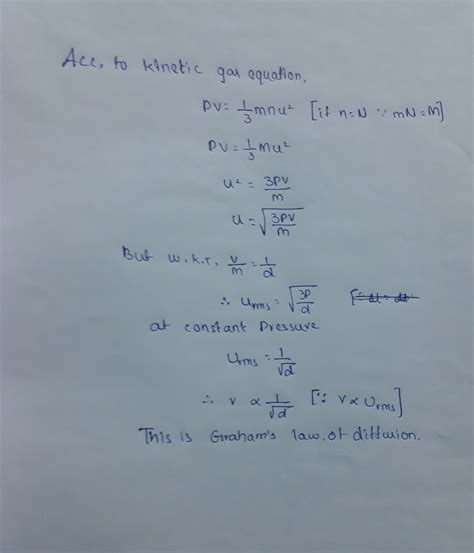 Acc. to kinetic gas equation.
PV = 1/3 mnu² [if n=N ∵ mN=M]
PV = 1/3 Mu²
u² = 3PV/M
u = √(3PV/M)
But w.k.T, V/M = 1/d
∴ Urms = √(3P/d)
at constant Pressure
Urms = 1/√d
∴ v ∝ 1/√d [∵ V ∝ Urms]
This is Graham's law of diffusion.